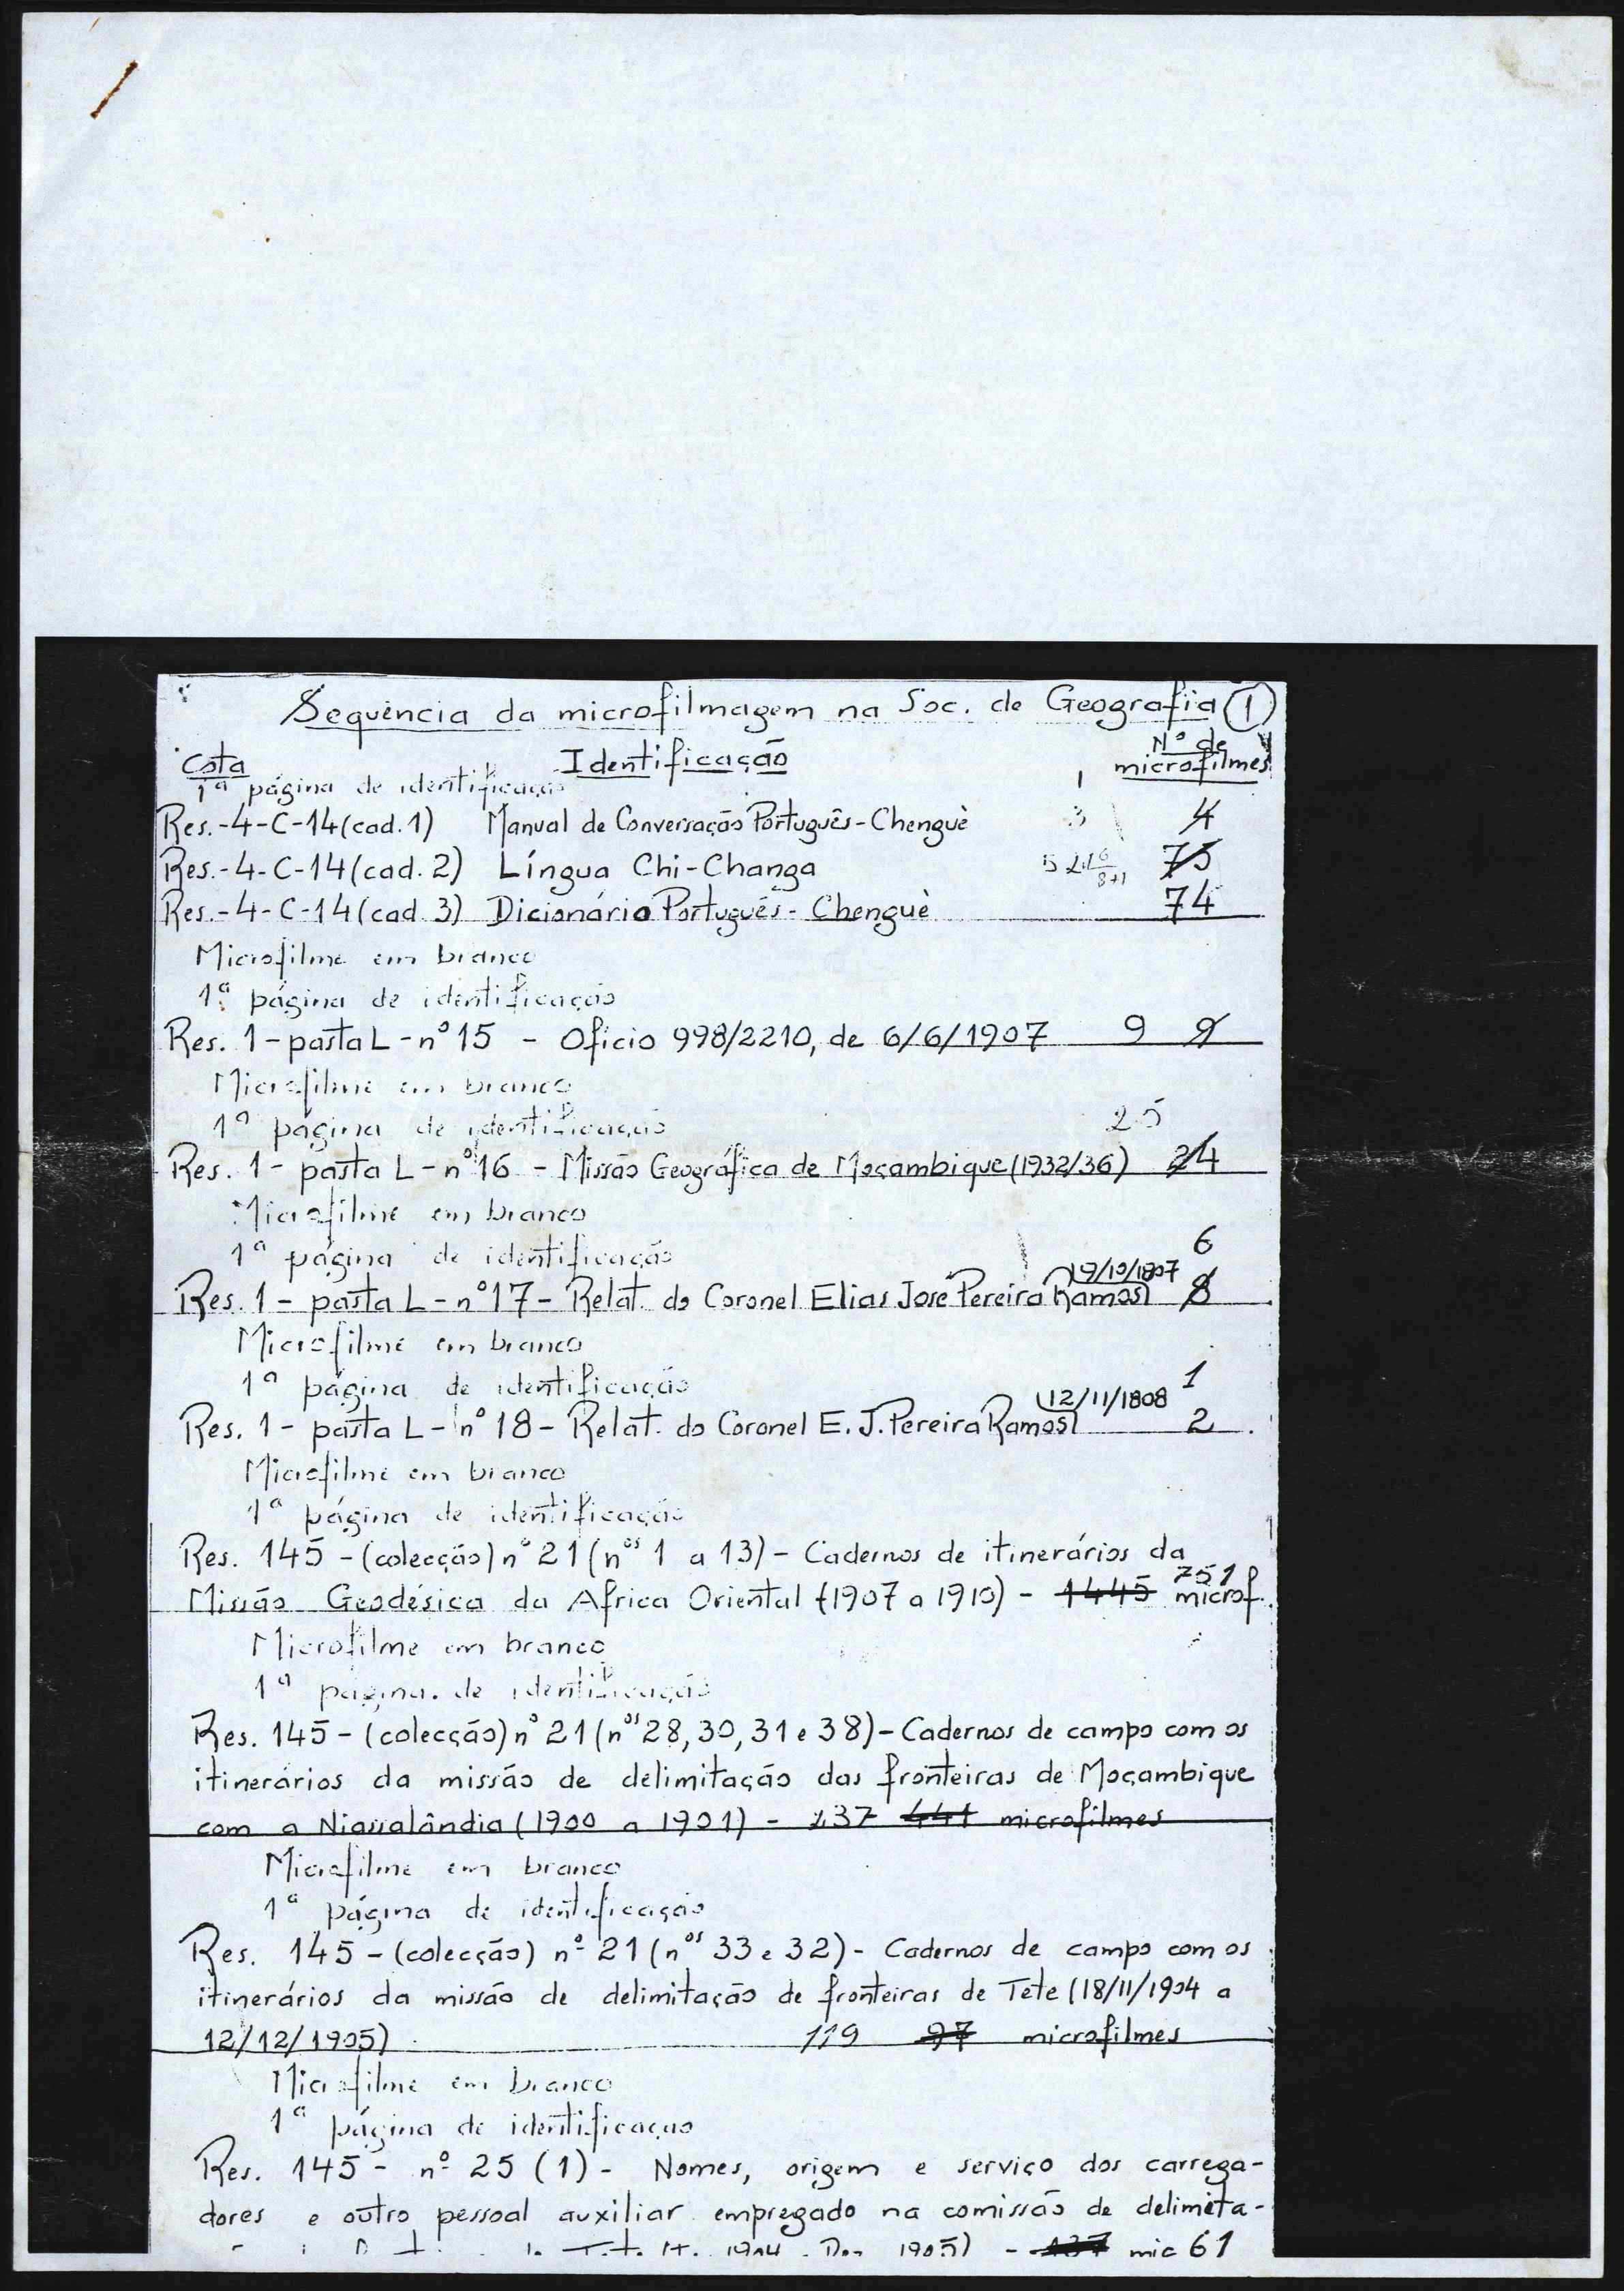 Sequência da microfilmagem na Soc. de Geografia 1
Cota Identificação Nº de microfilmes
1ª página de identificação 1
Res.-4-C-14 (cad. 1) Manual de Conversação Português-Chenguè 3 4
Res.-4-C-14 (cad. 2) Língua Chi-Changa 75
Res.-4-C-14 (cad. 3) Dicionário Português-Chenguè 74
Microfilme em branco
1ª página de identificação
Res. 1-pasta L-nº 15 - Oficio 998/2210, de 6/6/1907 9 9
Microfilme em branco
1ª página de identificação 25
Res. 1-pasta L-nº 16 - Missão Geográfica de Moçambique (1932/36) 24
Microfilme em branco
1ª página de identificação 6
Res. 1-pasta L-nº 17 - Relat. do Coronel Elias José Pereira Ramos 8
Microfilme em branco
1ª página de identificação 1
Res. 1-pasta L-nº 18 - Relat. do Coronel E. J. Pereira Ramos (12/11/1808 2
Microfilme em branco
1ª página de identificação
Res. 145-(colecção) nº 21 (nºs 1 a 13) - Cadernos de itinerários da
Missão Geodésica da Africa Oriental (1907 a 1910) - 1445 751 microf.
Microfilme em branco
1ª página de identificação
Res. 145-(colecção) nº 21 (nºs 28, 30, 31 e 38) - Cadernos de campo com os
itinerários da missão de delimitação das fronteiras de Moçambique
com a Niassalândia (1900 a 1901) - 237 441 microfilmes
Microfilme em branco
1ª página de identificação
Res. 145-(colecção) nº 21 (nºs 33 e 32) - Cadernos de campo com os
itinerários da missão de delimitação de fronteiras de Tete (18/11/1904 a
12/12/1905) 119 97 microfilmes
Microfilme em branco
1ª página de identificação
Res. 145 - nº 25 (1) - Nomes, origem e serviço dos carrega-
dores e outro pessoal auxiliar empregado na comissão de delimita-
1905) - mic 61